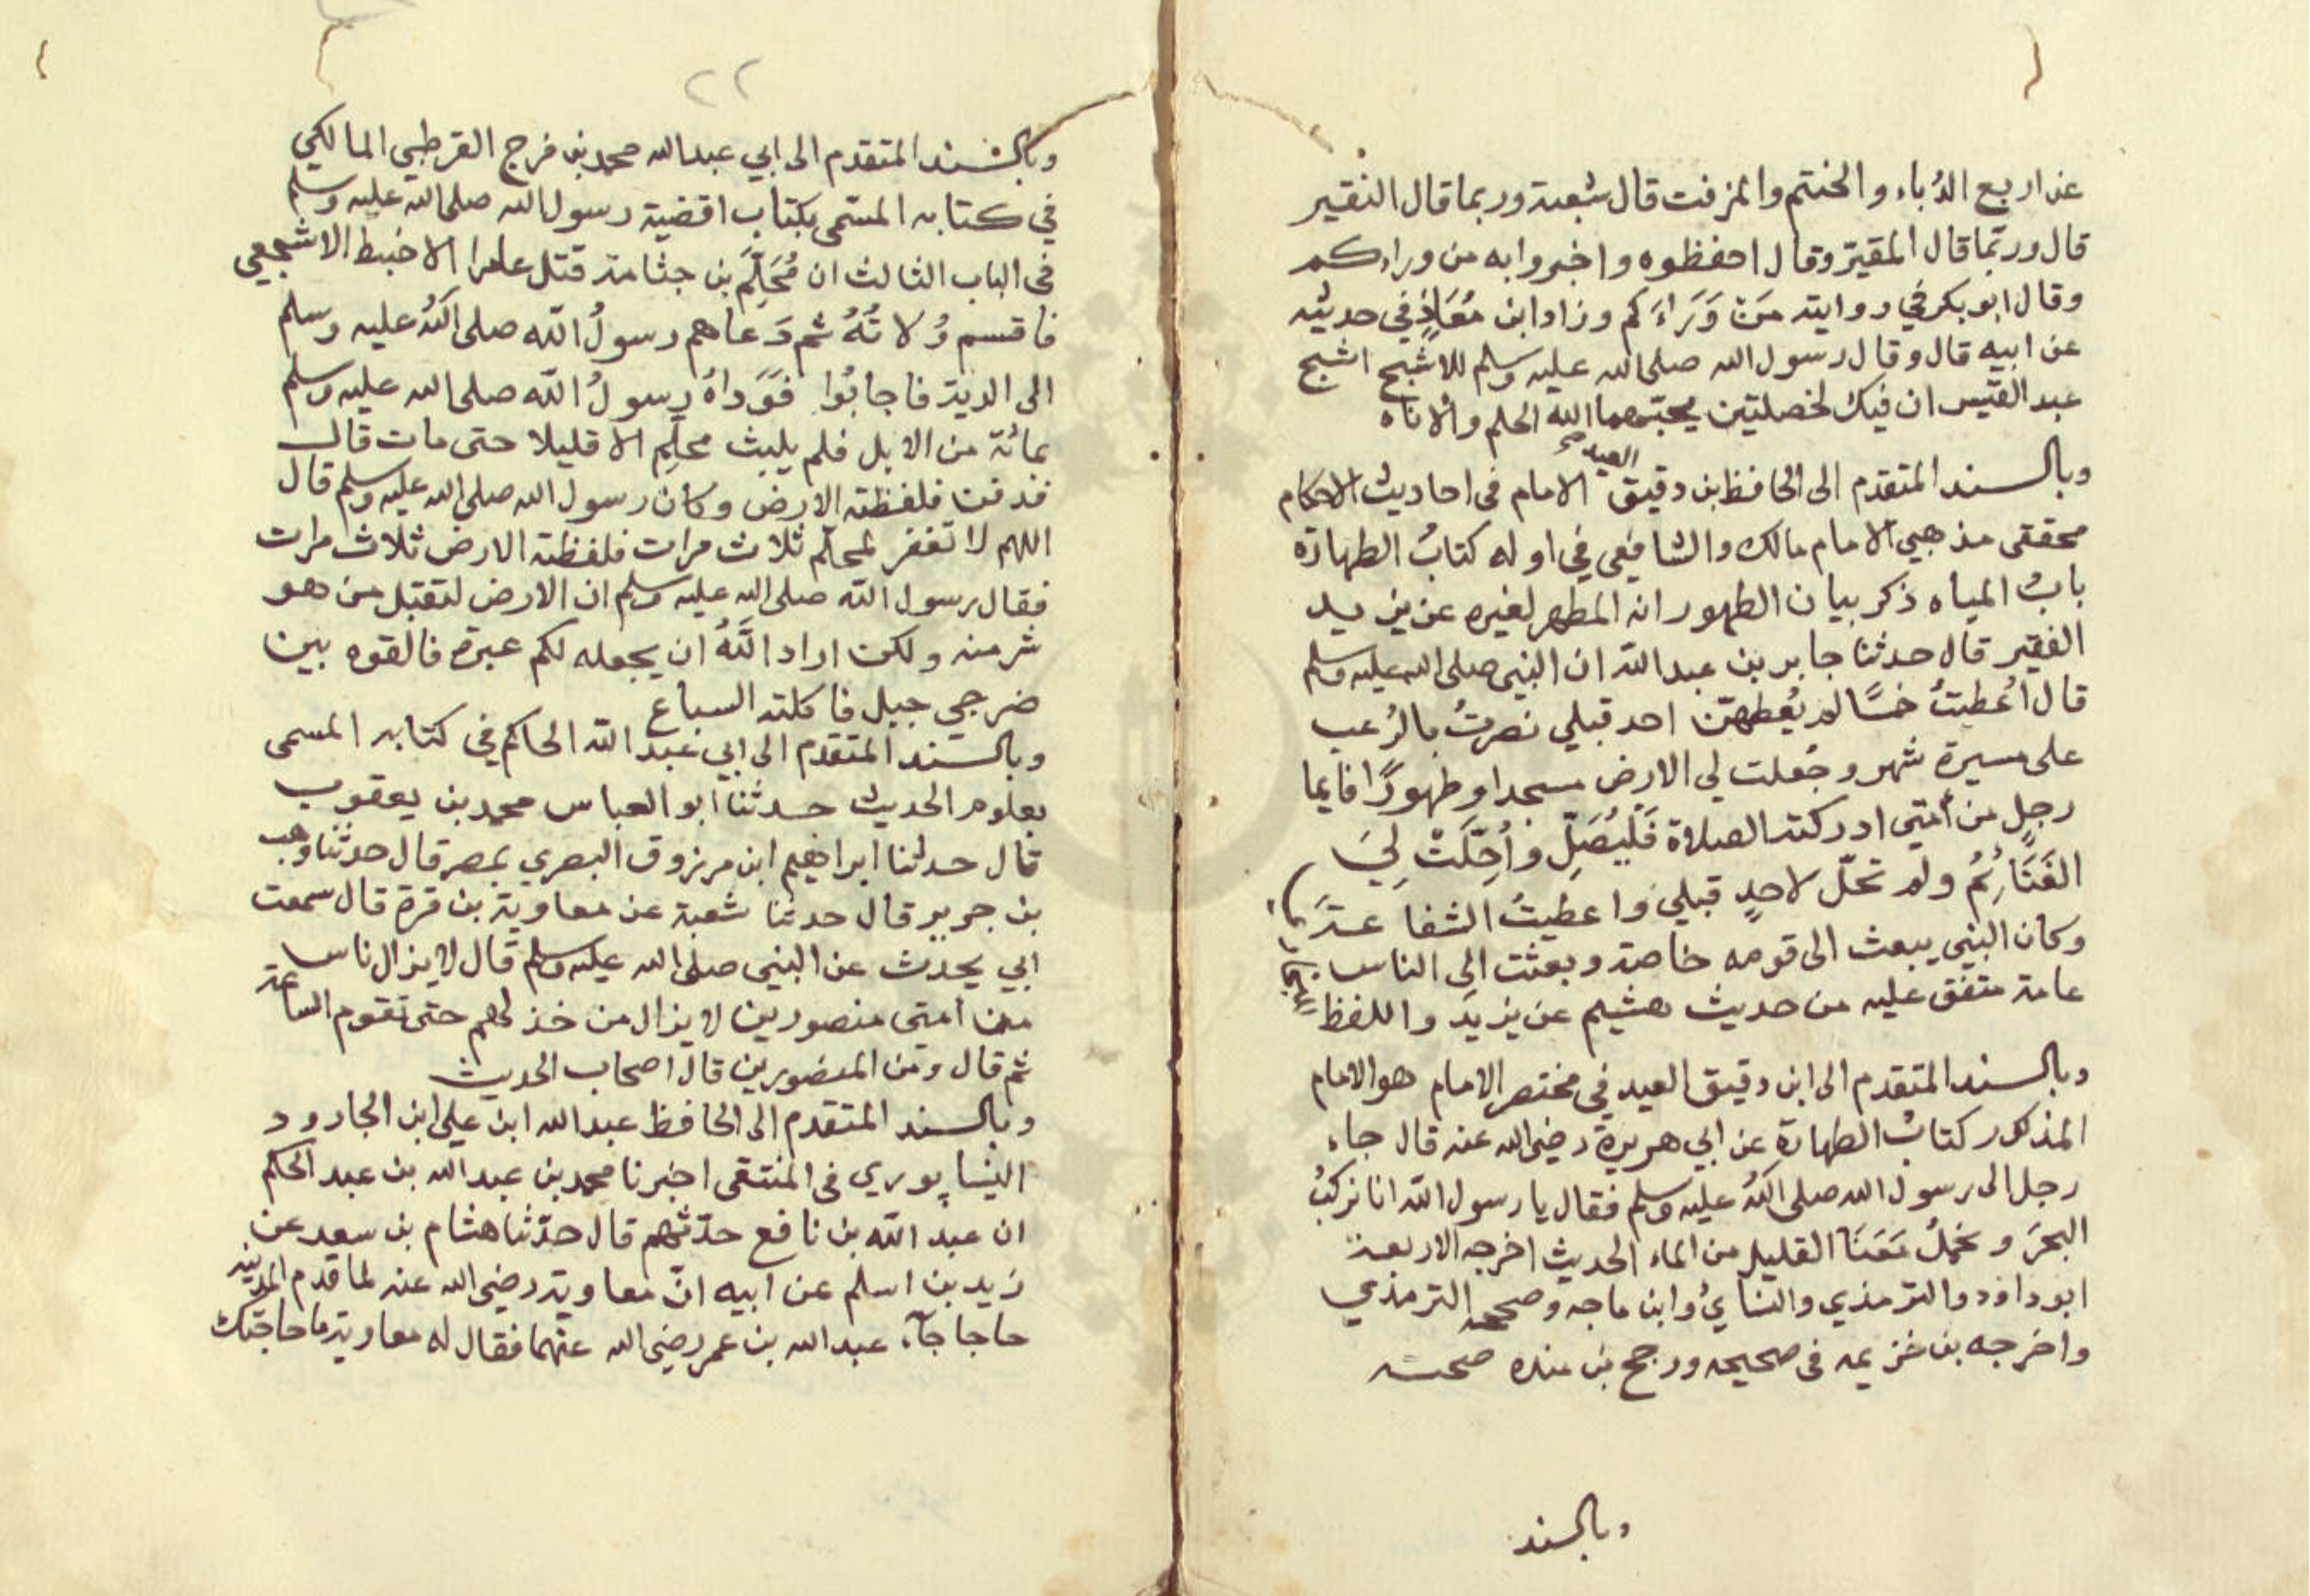 عن اربع الدُباء والحنتم والمزفت قال شعبة وربما قال النقير
قال وربّما قال المقيّر وقال احفظوه واخبروا به من وراءكم
وقال ابو بكر في روايته مَنْ وَرَاءَكم وزاد ابن مُعَاذٍ في حديثه
عن ابيه قال وقال رسول الله صلى الله عليه وسلم للاشج اشج
عبد القيس ان فيك لخصلتين يحبّهما الله الحلم والاناة
وبالسند المتقدم الى الحافظ بن دقيق العيد الامام في احاديث الاحكام
محقق مذهبي الامام مالك والشافعي في اوله كتابُ الطهارة
بابُ المياه ذكر بيان الطهور انه المطهر لغيره عن يزيد
الفقير قال حدثنا جابر بن عبد الله ان النبي صلى الله عليه وسلم
قال اُعطيتُ خمسًا لم يُعطهنّ احد قبلي نصرتُ بالرُعب
على مسيرة شهر وجُعلت لي الارض مسجدا وطهورًا فايما
رجلٍ من أمتي ادركته الصلاة فَلْيُصَلِّ وأُحِلَّتْ لِيَ
الغَنَائِمُ ولم تحلّ لاحدٍ قبلي واعطيتُ الشفاعةَ
وكان النبي يبعث الى قومه خاصة وبعثت الى الناس
عامة متفق عليه من حديث هشيم عن يزيد واللفظ
وبالسند المتقدم الى ابن دقيق العيد في مختصر الامام هو الامام
المذكور كتابُ الطهارة عن ابي هريرة رضي الله عنه قال جاء
رجل الى رسول الله صلى اللهُ عليه وسلم فقال يا رسول الله انا نركبُ
البحرَ ونحملُ مَعَنَا القليل من الماء الحديث اخرجه الاربعة
ابو داود والترمذي والنسايُ وابن ماجه وصححه الترمذي
واخرجه بن خزيمه في صحيحه ورجح بن منده صحته
وبالسند
٢٢
وبالسند المتقدم الى ابي عبد الله محمد بن فرج القرطبي المالكي
في كتابه المسّمى بكتاب اقضية رسول الله صلى الله عليه وسلم
في الباب الثالث ان مُحَلِّمَ بن جثامة قتل عامرا الاضبط الاشجعي
فاقسم وُلاتُهُ ثم دَعاهم رسولُ الله صلى اللهُ عليه وسلم
الى الدية فاجابُوا فَوَداهُ رسولُ الله صلى الله عليه وسلم
بمائة من الابل فلم يلبث محلِّم الا قليلا حتى مات قال
فدفن فلفظته الارض وكان رسول الله صلى الله عليه وسلم قال
اللهم لا تغفر لمحلّم ثلاث مرات فلفظته الارض ثلاث مرات
فقال رسول الله صلى الله عليه وسلم ان الارض لتقبل من هو
شر منه ولكن اراد اللَّهُ ان يجعله لكم عبرة فالقوه بين
ضرجي جبل فاكلته السباع
وبالسند المتقدم الى ابي عبد الله الحاكم في كتابه المسمى
بعلوم الحديث حدثنا ابو العباس محمد بن يعقوب
قال حدثنا ابراهيم ابن مرزوق البصري بمصر قال حدثنا وهب
بن جرير قال حدثنا شعبة عن معاوية بن قرة قال سمعت
ابي يحدث عن النبي صلى الله عليه وسلم قال لا يزال ناس
من امتي منصورين لا يزال من خذلهم حتى تقوم الساعة
ثم قال ومن المنصورين قال اصحاب الحديث
وبالسند المتقدم الى الحافظ عبد الله ابن علي ابن الجارود
النيسابوري في المنتقى اخبرنا محمد بن عبد الله بن عبد الحكم
ان عبد الله بن نافع حدّثهم قال حدّثنا هشام بن سعد عن
زيد بن اسلم عن ابيه انّ معاوية رضي الله عنه لما قدم المدينة
حاجا جآء عبد الله بن عمر رضي الله عنهما فقال له معاوية ما حاجتك